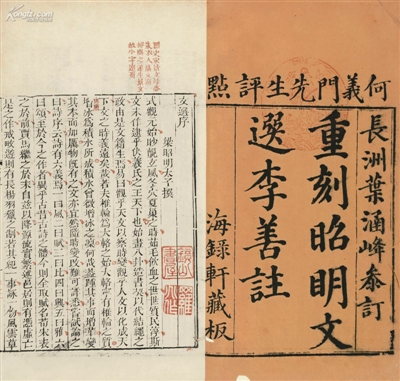 何義門先生評點
長洲葉涵峰參訂
重刻昭明文
選李善註
海錄軒藏板
文選序
梁昭明太子撰
式觀元始眇覿玄風冬穴夏巢之時茹毛飲血之世世質民淳斯
文未作逮乎伏羲氏之王天下也始畫八卦造書契以代結繩之
政由是文籍生焉易曰觀乎天文以察時變觀乎人文以化成天
下文之時義遠矣哉若夫椎輪為大輅之始大輅寧有椎輪之質
增冰為積水所成積水曾微增冰之凜何哉蓋踵其事而增華變
其本而加厲物既有之文亦宜然隨時變改難可詳悉嘗試論之
曰詩序云詩有六義焉一曰風二曰賦三曰比四曰興五曰雅六
曰頌至於今之作者異乎古昔古詩之體今則全取賦名荀宋表
之於前賈馬繼之於末自茲以降源流實繁述邑居則有憑虛亡
是之作戒畋遊則有長楊羽獵之制若其紀一事詠一物風雲草